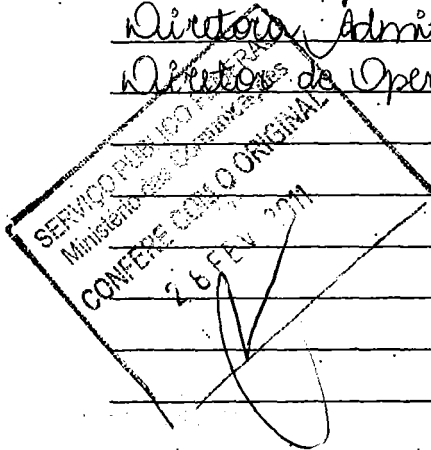 Diretora Admi
Diretor de Oper
SERVIÇO PÚBLICO FEDERAL
Ministério das Comunicações
CONFERE COM O ORIGINAL
26 FEV 2011